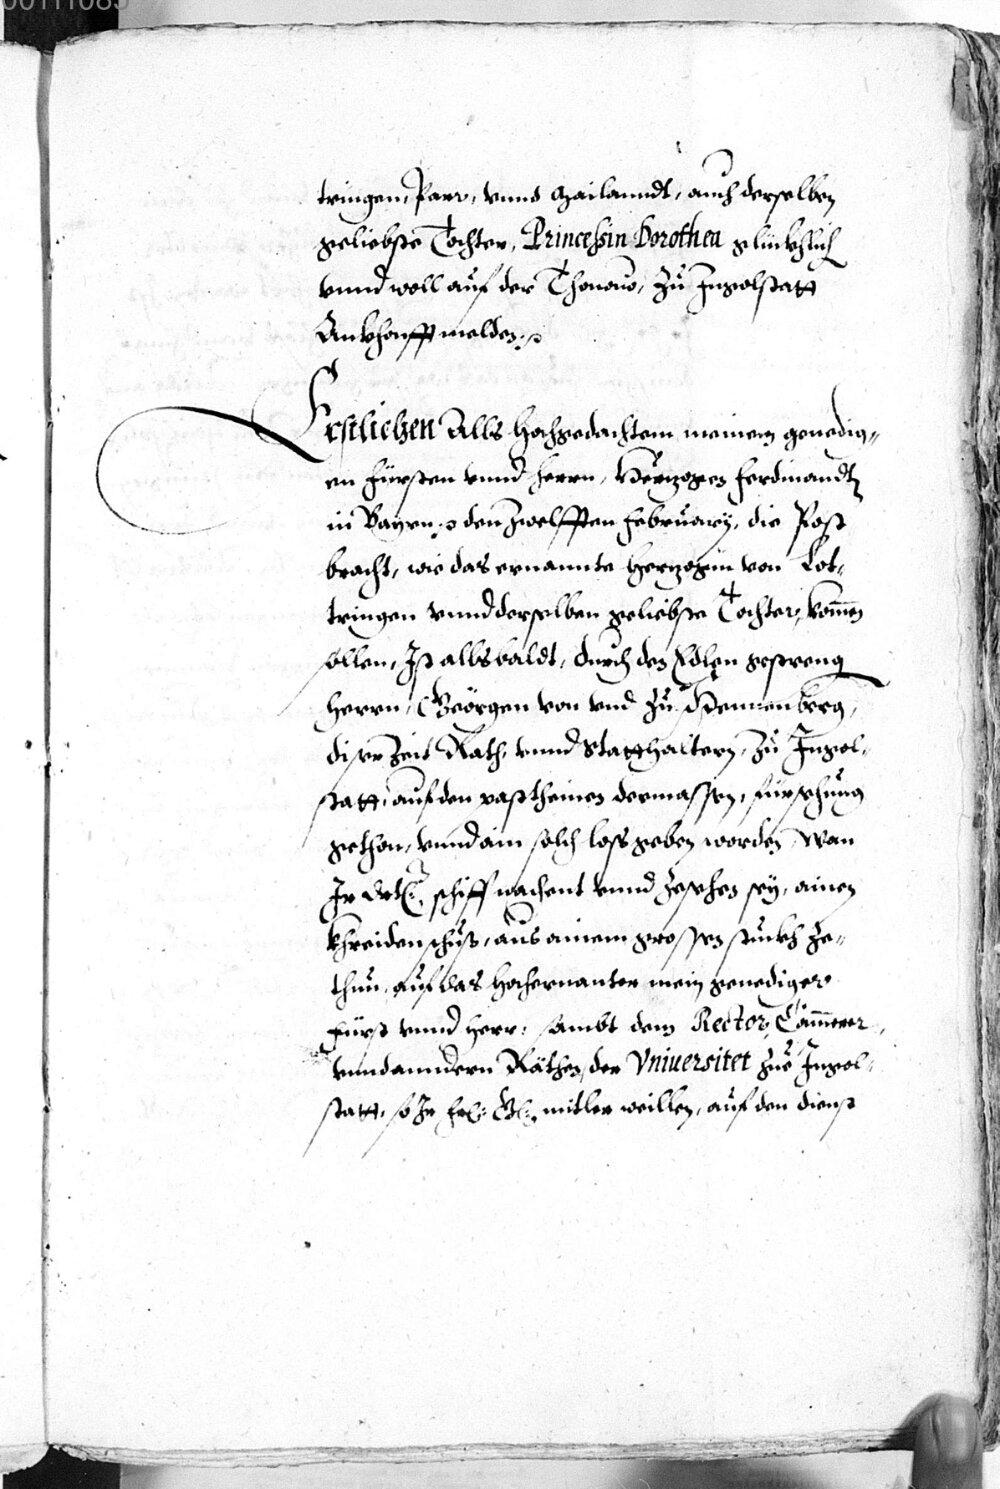 00111085
tringen, Parr, vnnd Mailanndt, auch derselben
geliebste Tochter, Princessin Dorothea glückhlich
vnnd woll auf der Thonaw, zu Ingolstatt
Ankhonfft melden:
Erstlichen Alls hochgedachtem meinem genedig-
en Fürsten vnnd herrn, Hertzogen Ferdinandt
in Bayrn: den Zwelfften February, die Post
bracht, wie das ernannte Hertzogin von Lot-
tringen vnnd derselben geliebste Tochter, komen
sollen, Ist allsbaldt, durch den Edlen gestreng
herrn, Geörgen von vnd zu Hennenberg,
diser Zeit Rath, vnnd Statthaltern, zu Ingol-
statt, auf den pasteinen dermassen, fürsehung
gethon, vnnd ain solch loss geben worden, Wan
Ir drtl: schiff nachent vnnd zesehen sey, ainen
khreidenschuß, aus ainem grossen stuckh ze-
thun, auf das hochernanter mein genediger
Fürst vnnd herr, sambt dem Rector, Camerer,
vnnd anndern Räthen, der Vniuersitet zue Ingol-
statt, so Ir Frl: Gl: mitler weillen, auf den dienst